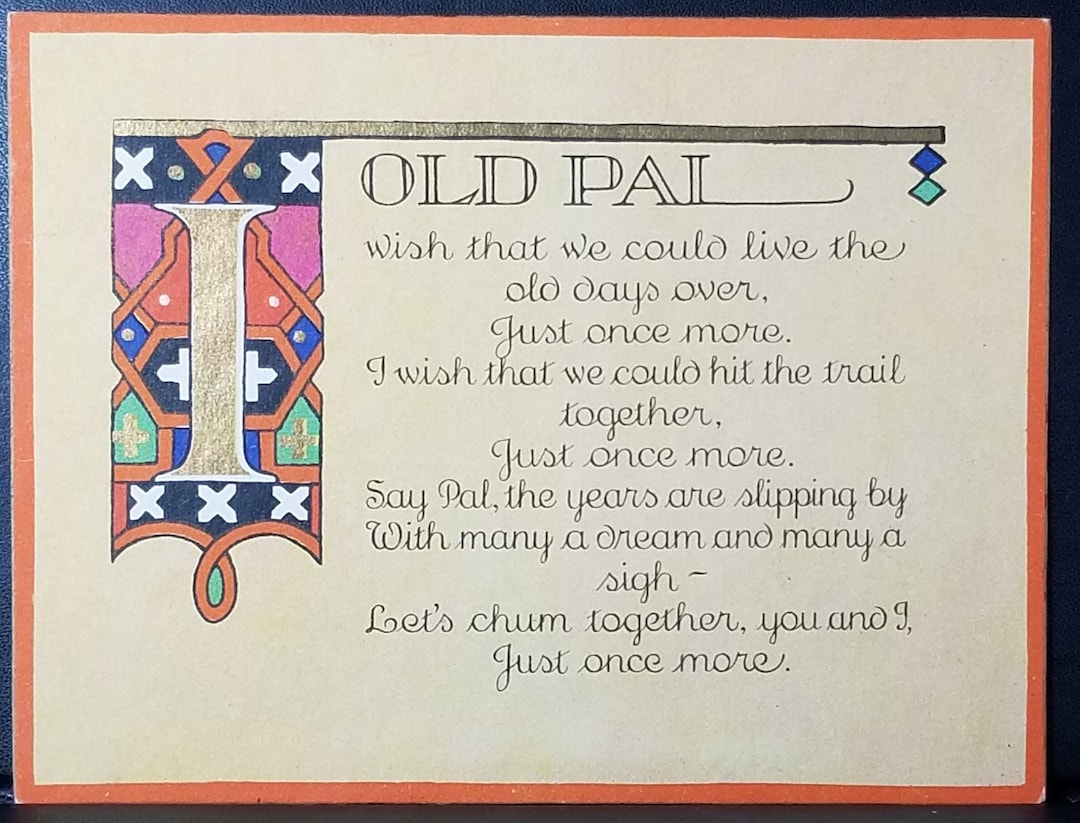 OLD PAL
I wish that we could live the
old days over,
Just once more.
I wish that we could hit the trail
together,
Just once more.
Say Pal, the years are slipping by
With many a dream and many a
sigh –
Let's chum together, you and I,
Just once more.